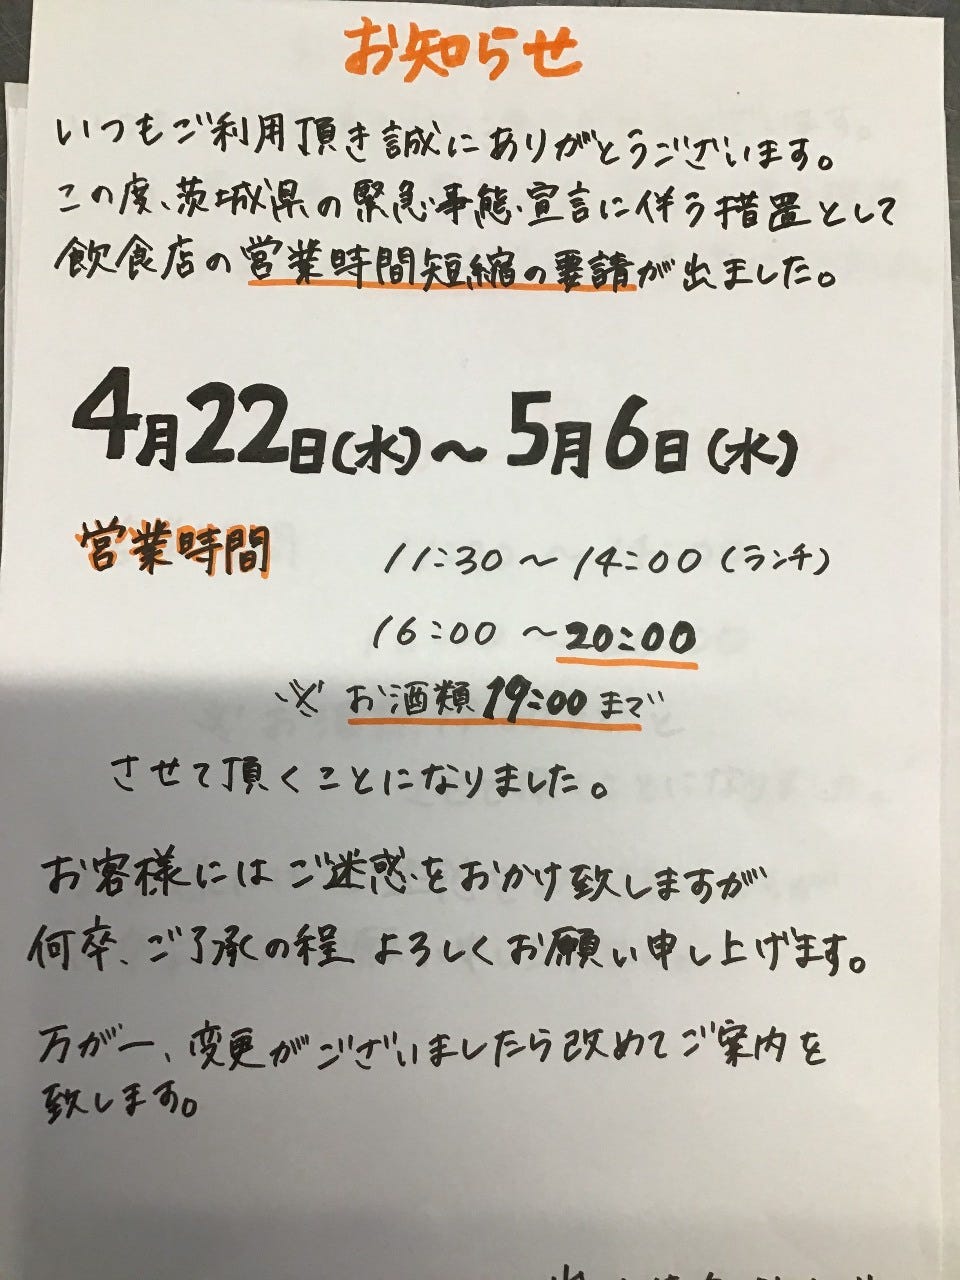 お知らせ
いつもご利用頂き誠にありがとうございます。
この度、茨城県の緊急事態宣言に伴う措置として
飲食店の営業時間短縮の要請が出ました。
4月22日(水)～5月6日(水)
営業時間 11:30～14:00(ランチ)
16:00～20:00
※お酒類19:00まで
させて頂くことになりました。
お客様にはご迷惑をおかけ致しますが
何卒、ご了承の程よろしくお願い申し上げます。
万が一、変更がございましたら改めてご案内を
致します。